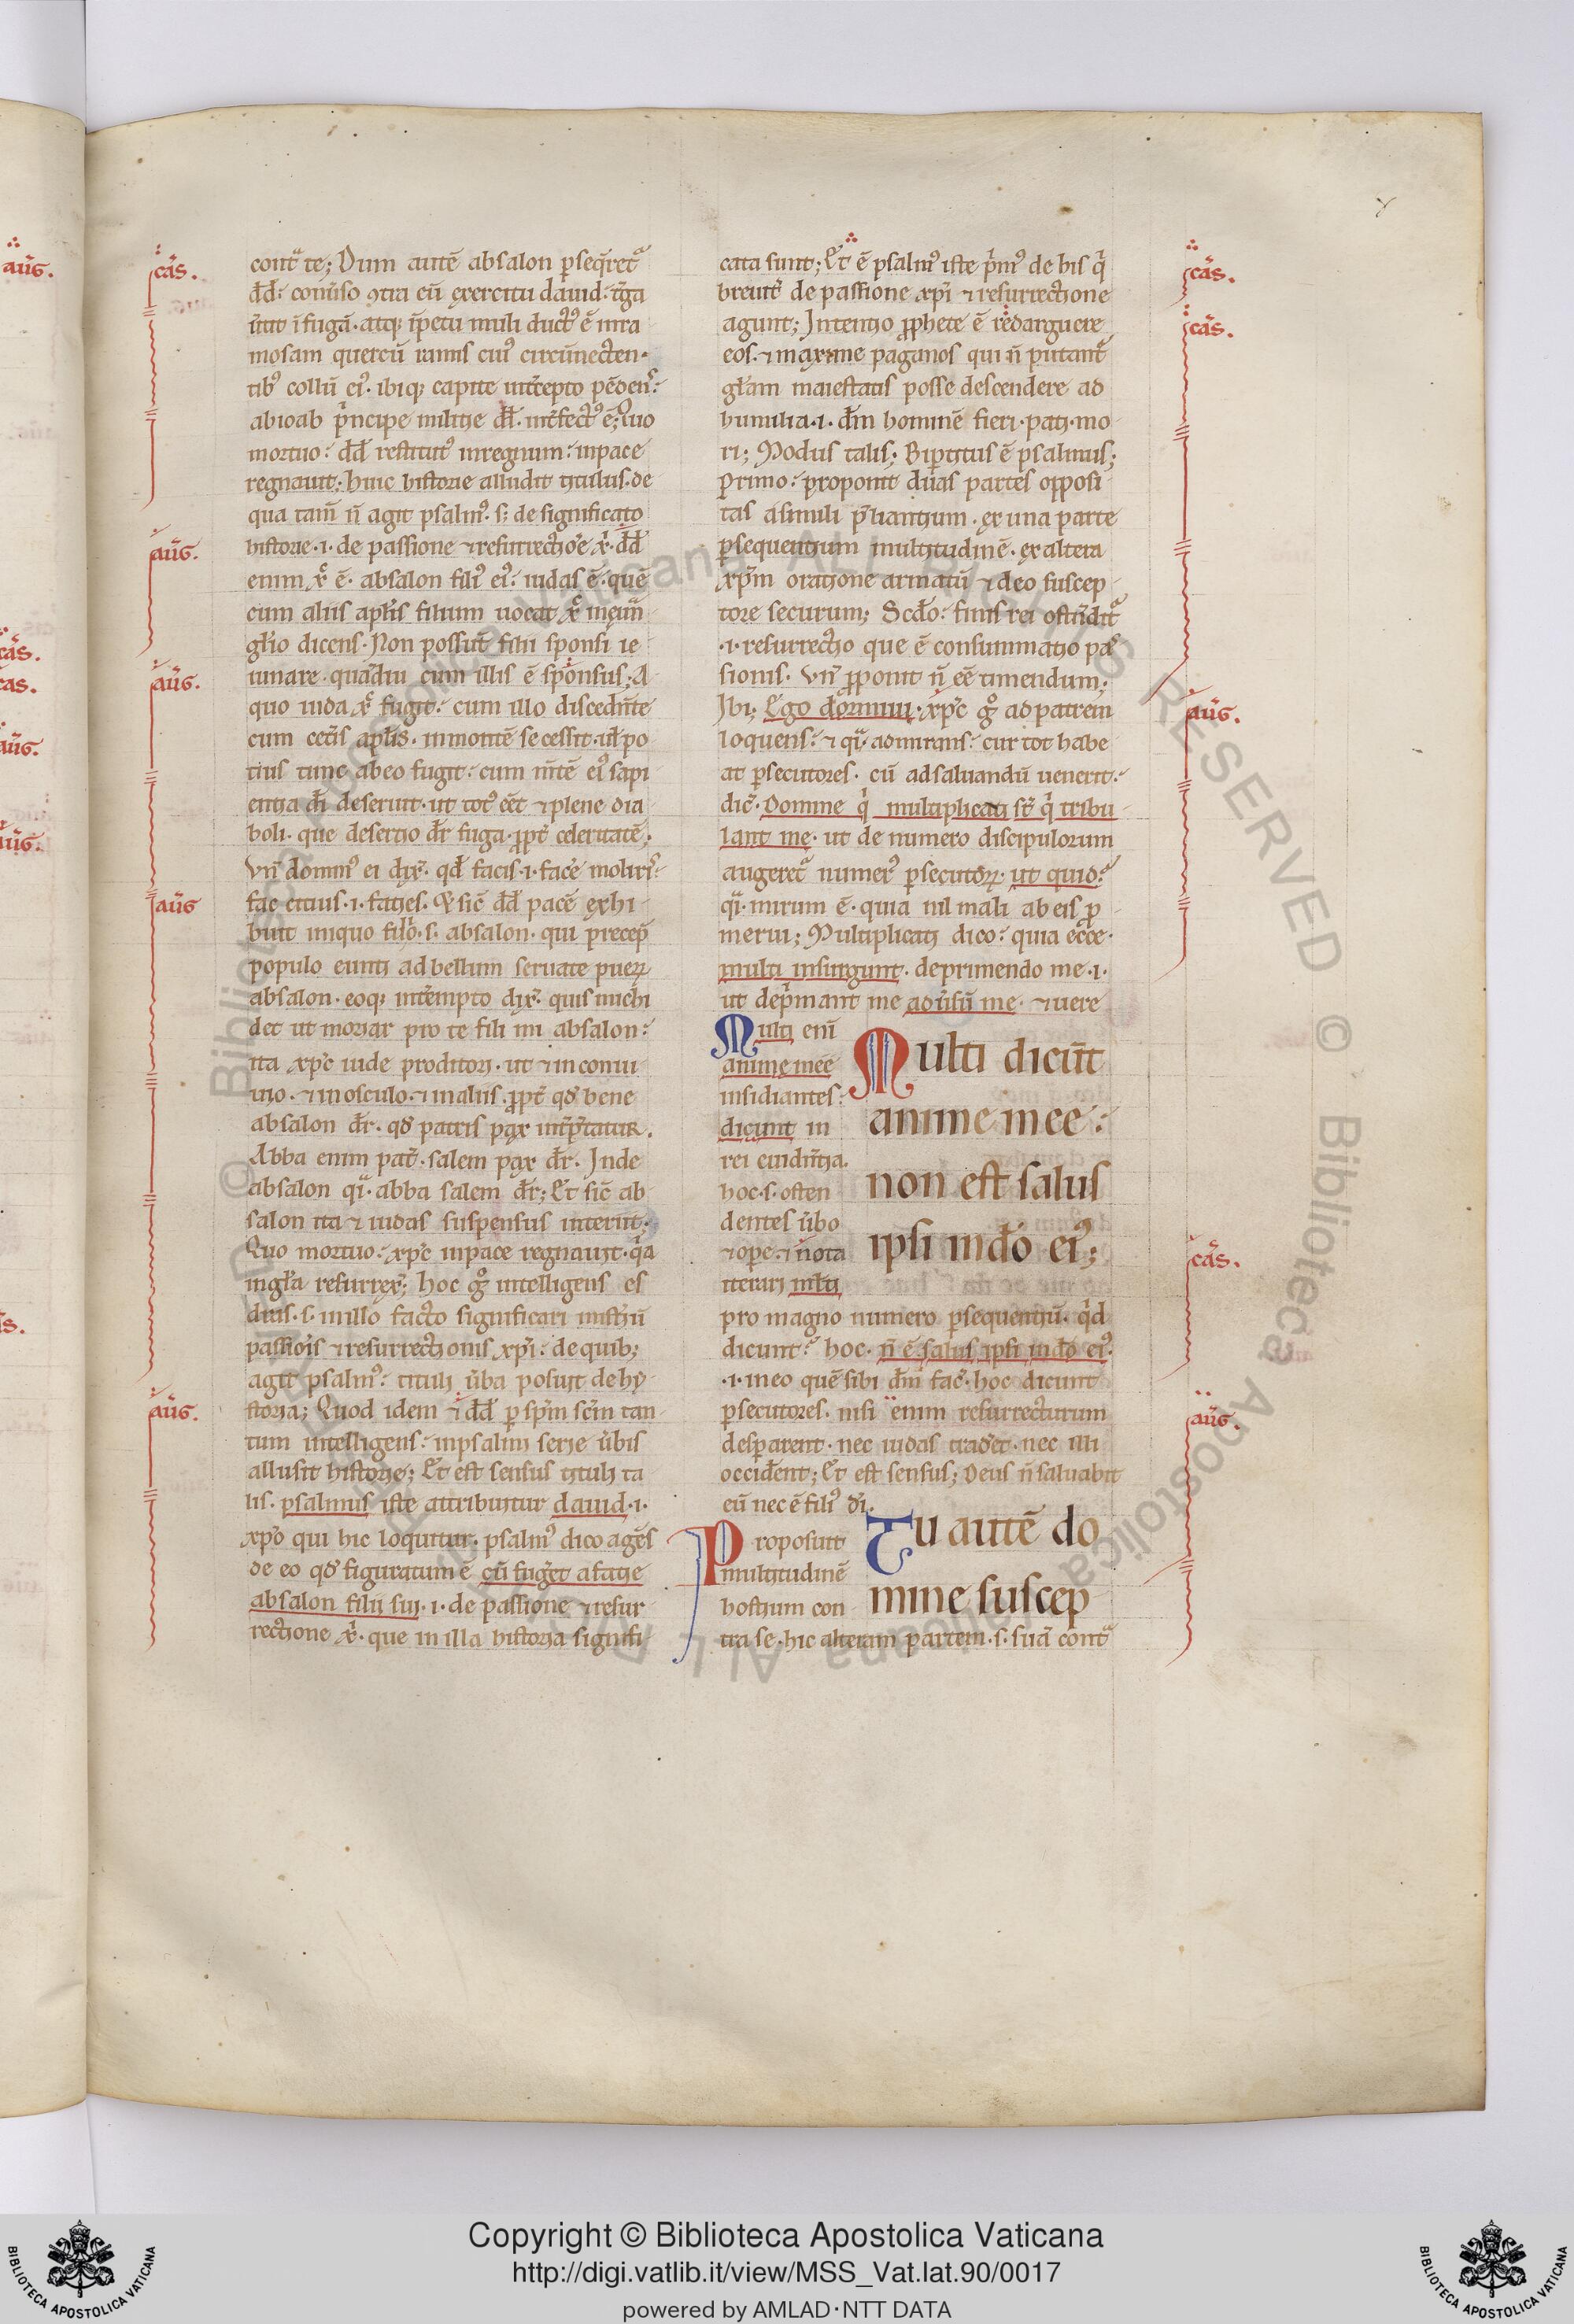 aũg.
cãs.
cas.
aũg.
aũg.
s.
cãs.
aũg.
aũg.
aũg
aũg.
cont̃ te; Dum autẽ absalon p̱seq̃ret᷑
dd̃: conũso ꝯtra eũ exercitu dauid: t̃ga
ũtit ĩ fugã. atq; ĩpetu muli duct᷒ ẽ in ra
mosam quercũ ramis cui᷒ circũnecten-
tib᷒ collũ ei᷒. ibiq; capite int̃cepto pẽdens:
a ioab p̃ncipe militie dd̃. int̃fect᷒ ẽ; Quo
mortuo: dd̃ restitut᷒ in regnum: in pace
regnauit; huic historie alludit titulus. de
qua tam̃ ñ agit psalm᷒. s; de significato
historie .i. de passione ⁊ resurrectiõe xp̃i. dd̃
enim xp̃c ẽ. absalon fili᷒ ei᷒: iudas ẽ. quẽ
cum aliis apl̃is filium uocat xp̃c in euãn
gl̃io dicens. Non possũt filii sponsi ie
iunare. quãdiu cum illis ẽ sponsus; A
quo iuda xp̃c fugit: cum illo discedẽte
cum cet̃is apl̃is. in montẽ secessit. ul̃ po
tius tunc ab eo fugit: cum m̃tẽ ei᷒ sapi
entia dĩ deseruit. ut tot᷒ eẽt ⁊ plene dia
boli. que desertio dr̃ fuga. ꝓpt̃ celeritatẽ;
Vñ domin᷒ ei dix̃. qd̃ facis .i. facẽ moliris:
fac citius .i. facies. Et sic̃ dd̃ pacẽ exhi-
buit iniquo filio. s. absalon. qui precep̃
populo eunti ad bellum seruate pueꝝ
absalon. eoq; int̃empto dix̃. quis michi
det ut moriar pro te fili mi absalon:
ita xp̃c iude proditori. ut ⁊ in conui
uio. ⁊ in osculo. ⁊ in aliis. ꝓpt̃ qd̃ bene
absalon dr̃. qd̃ patris pax int̃p̃tatur.
Abba enim pat̃. salem pax dr̃. Inde
absalon q̃i. abba salem dr̃; Et sic̃ ab
salon ita ⁊ iudas suspensus interiit;
Quo mortuo: xp̃c in pace regnauit. q̃a
in gl̃ia resurrex̃; hoc g̊ intelligens es
dras. s. in illo facto significari mist̃iũ
passiõis ⁊ resurrectionis xp̃i: de quib;
agit psalm᷒: tituli ũba posuit de hy
storia; Quod idem ⁊ dd̃ p̱ sp̃m sc̃m tan-
tum intelligens: in psalmi serie ũbis
allusit historie; Et est sensus tituli ta
lis. psalmus iste attribuitur dauid .i.
xp̃o qui hic loquitur. psalm᷒ dico agẽs
de eo qd̃ figuratum ẽ cũ fug̃et a facie
absalon filii sui .i. de passione ⁊ resur
rectione xp̃i. que in illa historia signifi-
cata sunt; Et ẽ psalm᷒ iste p̃m᷒ de his q̃
breuit̃ de passione xp̃i ⁊ resurrectione
agunt; Intentio ꝓphete ẽ redarguere
eos. ⁊ maxime paganos qui ñ putant᷑
gl̃iam maiestatis posse descendere ad
humilia .i. dm̃ hominẽ fieri. pati. mo
ri; Modus talis; Bip̱titus ẽ psalmus;
Primo: proponit duas partes opposi-
tas a simili p̃liantium. ex una parte
p̱sequentium multitudinẽ. ex altera
xp̃m oratione armatũ ⁊ deo suscep-
tore securum; Scd̃o: finis rei ostẽdit᷑
.i. resurrectio que ẽ consummatio pas
sionis. vñ ꝓponit ñ eẽ timendum;
Ibi; Ego dormiui. xp̃c g̊ ad patrem
loquens: ⁊ q̃i. admirans: cur tot habe
at p̱secutores. cũ ad saluandũ uenerit:
dic̃. Domine q̃ multiplicati st̃ q̃ tribu-
lant me. ut de numero discipulorum
augeret᷑ numer᷒ p̱secutoꝝ. ut quid?
q̃i. mirum ẽ. quia nil mali ab eis p̱
merui; Multiplicati dico: quia ecce.
multi insurgunt. deprimendo me .i.
ut dep̃mant me adũsũ me. ⁊ uere
Multi eni
anime mee
insidiantes:
dicunt in
rei euidñtia.
hoc. s. osten
dentes ũbo
⁊ ope. ⁊ nota
iterari m̃lti
Multi dicũt
anime mee:
non est salus
ipsi in dõ ei᷒;
pro magno numero p̱sequentiũ. q̃d
dicunt? hoc. ñ ẽ salus ipsi in dõ ei᷒.
.i. in eo quẽ sibi dm̃ fac̃. hoc dicunt
p̱secutores. nisi enim resurrecturum
desp̱arent. nec iudas trad̃et. nec illi
occid̃ent; Et est sensus; Deus ñ saluabit
eũ nec ẽ fili᷒ dĩ.
Proposuit
multitudinẽ
hostium con-
Tu autẽ do
mine suscep-
tra se. hic alteram partem. s. suã cont᷑
cãs.
cãs.
aũg.
cãs.
aũg.
© Biblioteca Apostolica Vaticana ALL RIGHTS RESERVED
Copyright © Biblioteca Apostolica Vaticana
http://digi.vatlib.it/view/MSS_Vat.lat.90/0017
powered by AMLAD·NTT DATA
BIBLIOTECA APOSTOLICA VATICANA
BIBLIOTECA APOSTOLICA VATICANA